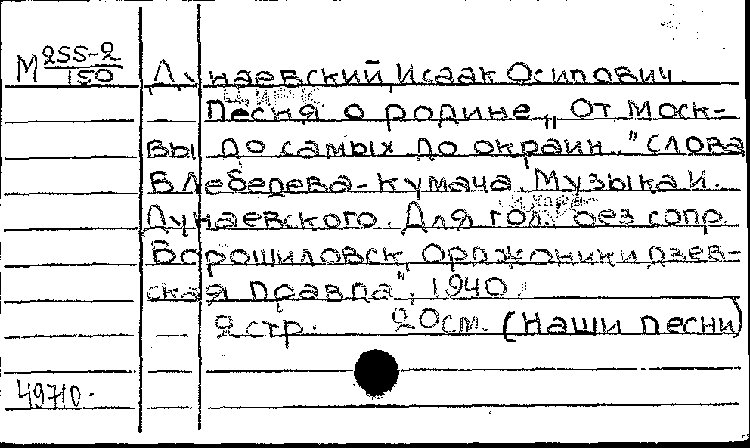 М 255-2
150
Дунаевский, Исаак Осипович.
Песня о родине „От Моск-
вы до самых до окраин." Слова
В Лебедева-Кумача. Музыка И.
Дунаевского. Для гол. без сопр.
Ворошиловск, Орджоникидзев-
ская Правда", 1940.
2 стр. 20 см. (Наши песни)
49710.